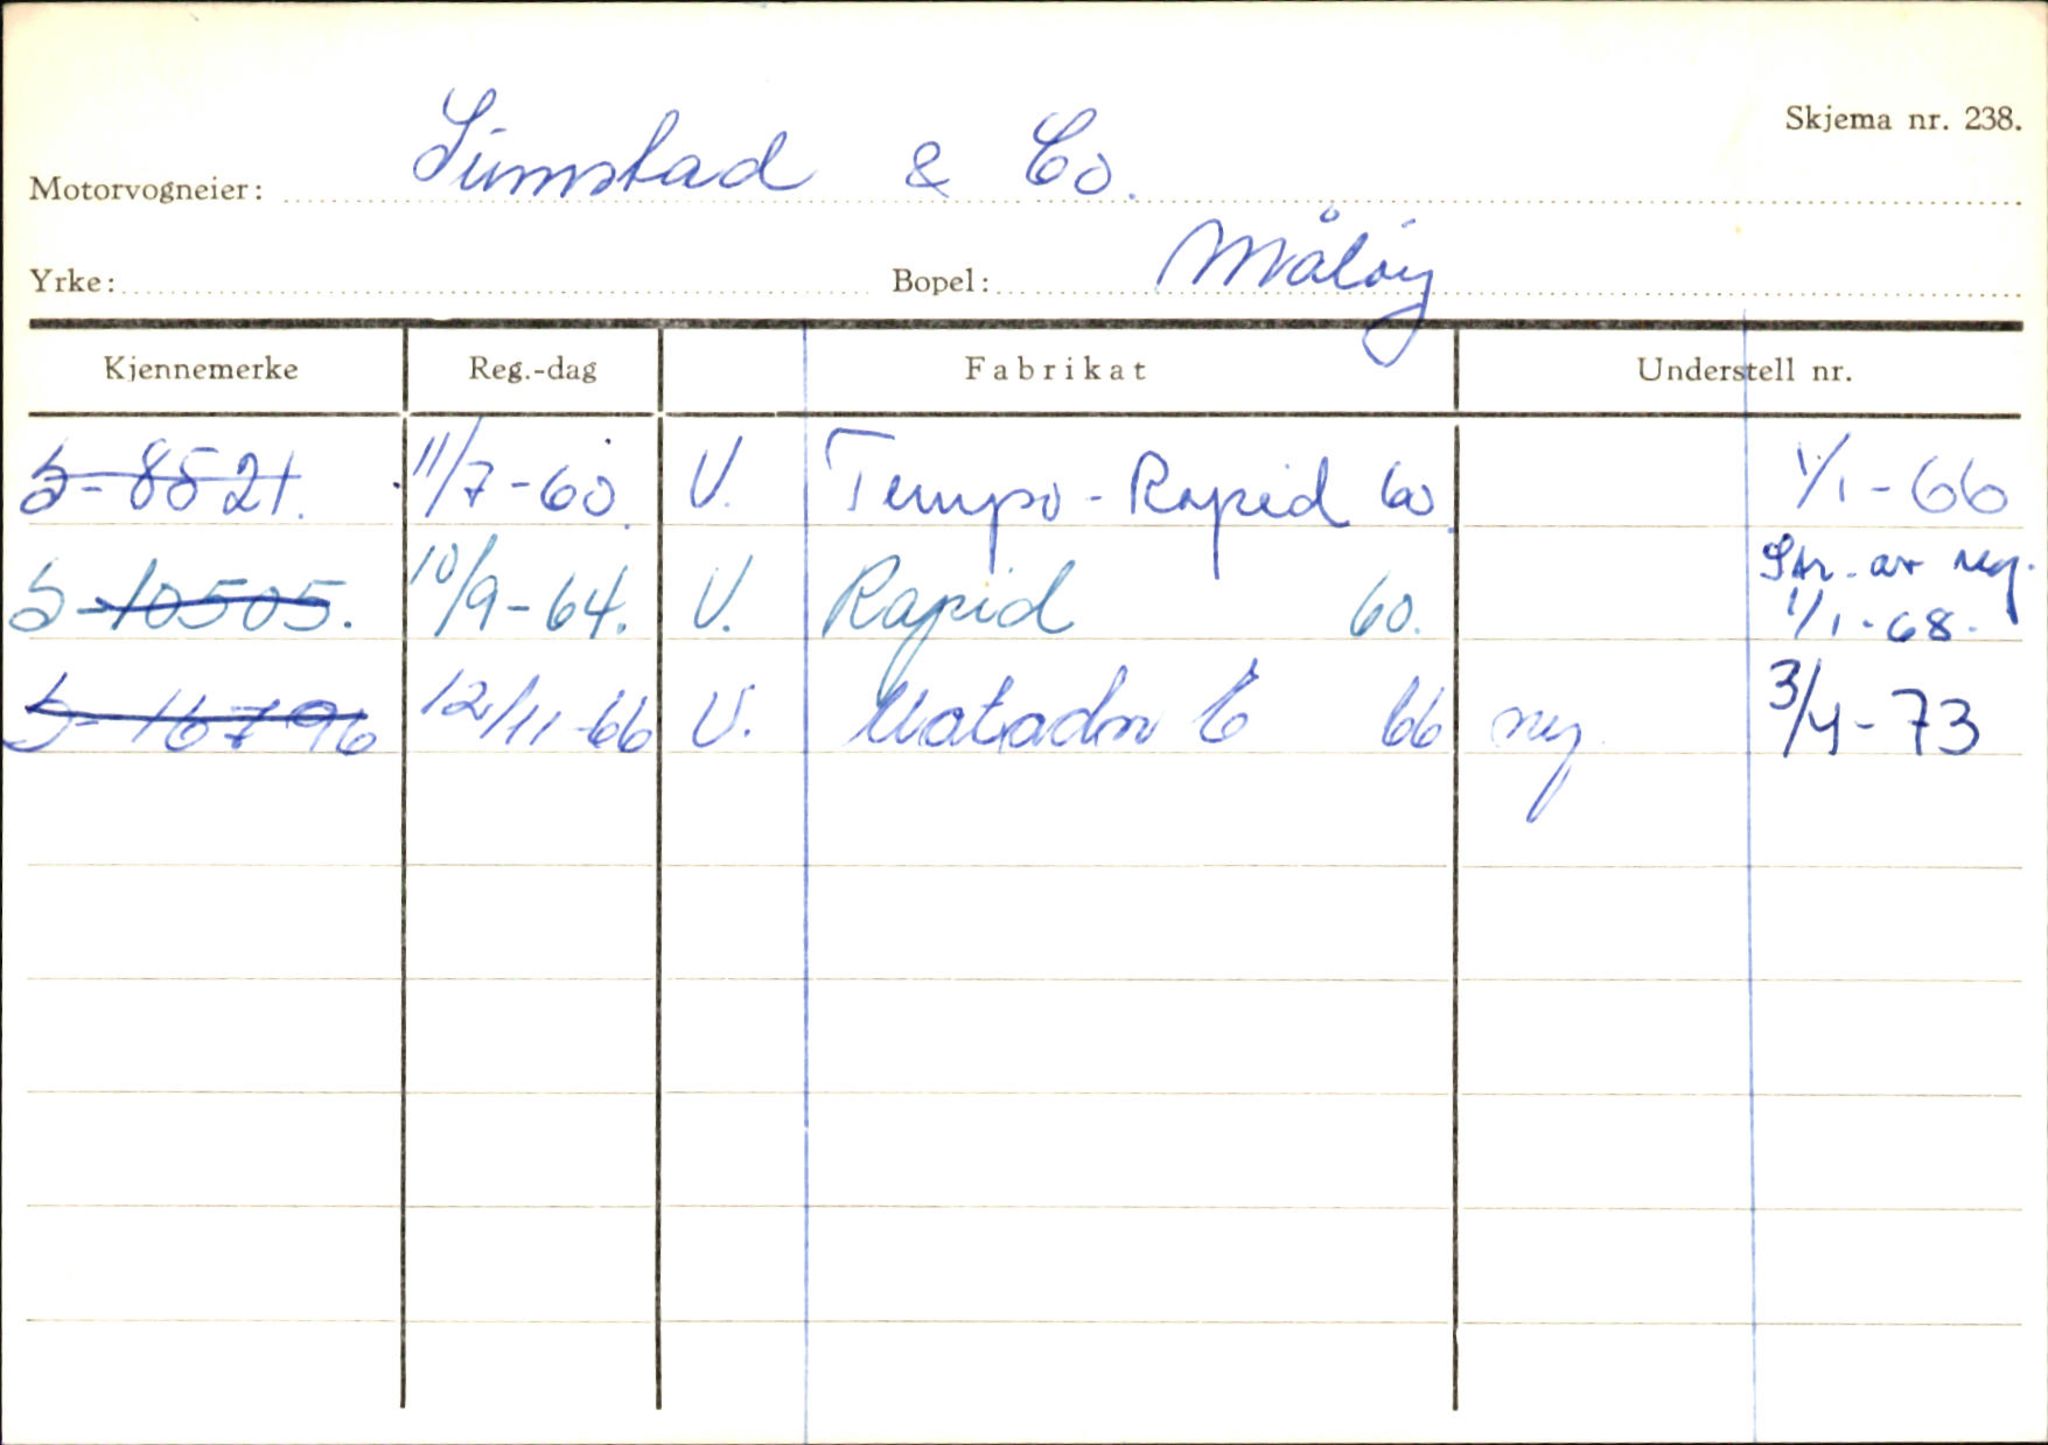 Skjema nr. 238.
Motorvogneier: Sumstad & Co.
Yrke: Bopel: Måløy
Kjennemerke Reg.-dag Fabrikat Understell nr.
S-8521. 11/7-60. V. Tempo-Rapid 60. 1/1-66
S-10505. 10/9-64. V. Rapid 60. Str. av reg.
1/1-68.
S-16796 12/11-66 V. Matador E 66 ny 3/4-73